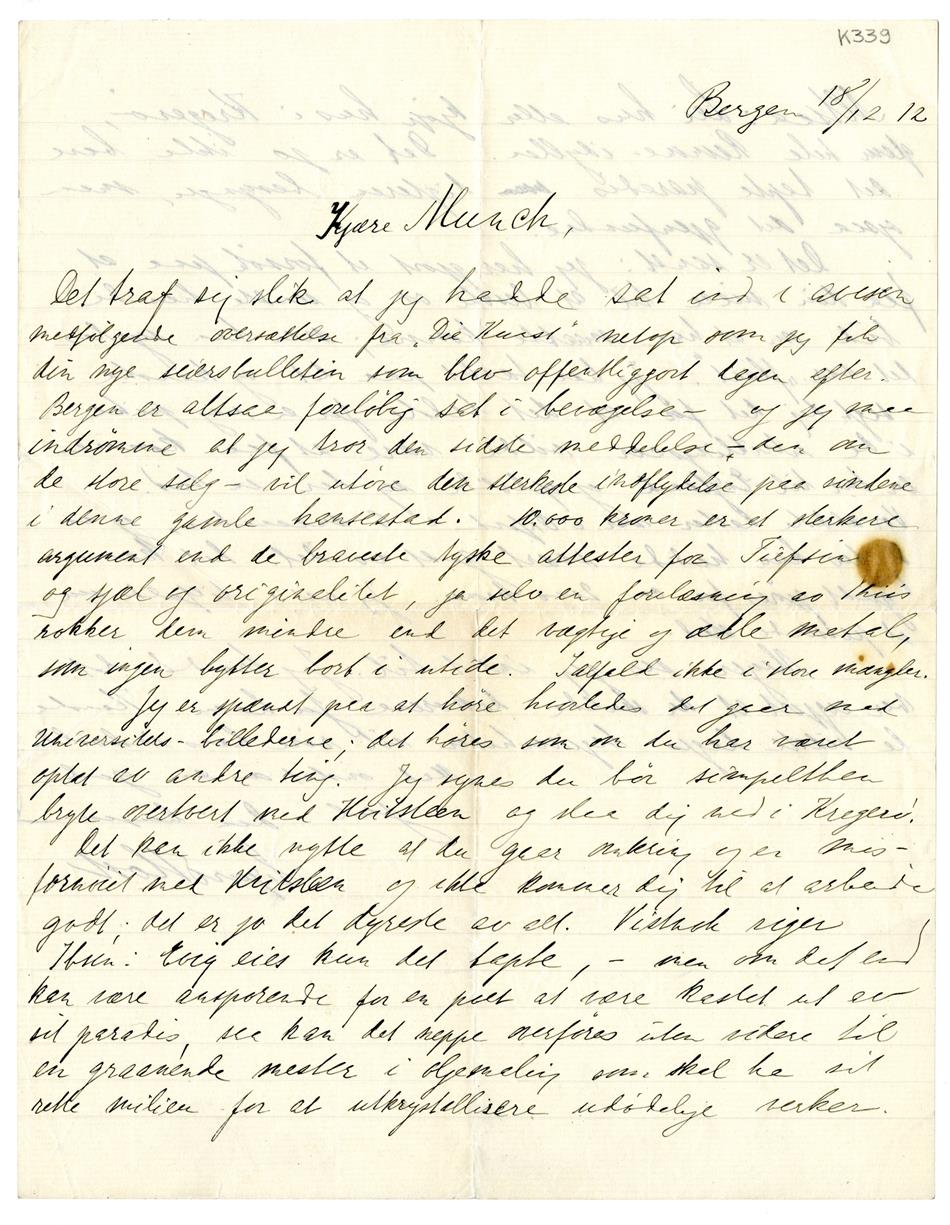 K339
Bergen 18/12 12
Kjære Munch,
Det traf sig slik at jeg hadde sat ind i avisen
medfølgende oversættelse fra „Die Kunst" netop som jeg fik
din nye seiersbulletin som blev offentliggjort dagen efter.
Bergen er altsaa foreløbig sat i bevægelse – og jeg maa
indrømme at jeg tror den sidste meddelelse, – den om
de store salg – vil utøve den sterkeste indflydelse paa sindene
i denne gamle hansestad. 10.000 kroner er et sterkere
argument end de braveste tyske attester for Tiefsinn
og sjæl og originalitet, ja selv en forelæsning av Thiis
rokker dem mindre end det vægtige og ædle metal,
som ingen bytter bort i utide. Ialfald ikke i store mængder.
Jeg er spændt paa at høre hvorledes det gaar med
Universitets-billederne; det høres som om du har været
optat av andre ting. Jeg synes du bør simpelthen
bryte overtvert med Hvitsteen og slaa dig ned i Kragerø.
Det kan ikke nytte at du gaar omkring og er mis-
fornøiet med Hvitsten og ikke kommer dig til at arbeide
godt; det er jo det dyreste av alt. Vistnok siger
Ibsen: Evig eies kun det tapte, – men om det end
kan være ansporende for en poet at være kastet ut av
sit paradis, saa kan det neppe overføres uten videre til
en graanende mester i oljemaling som skal ha sit
rette milieu for at utkrystallisere udødelige verker.